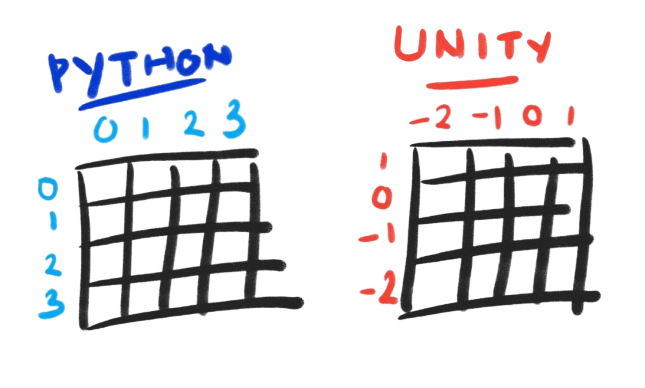 PYTHON
0 1 2 3
0
1
2
3
UNITY
-2 -1 0 1
1
0
-1
-2